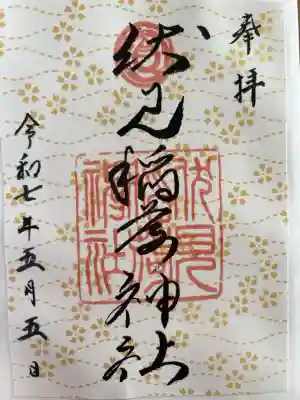 奉拝
伏見稲荷神社
令和七年五月五日